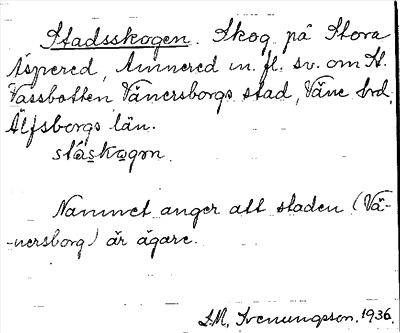 Stadsskogen. Skog på Stora
Äspered, Aminered m. fl. sv. om St.
Vassbotten Vänersborgs stad, Väne hrd,
Älfsborgs län.
stáskogən.
Namnet anger att staden (Vä-
-nersborg) är ägare.
I.M. Svenungsson. 1936.